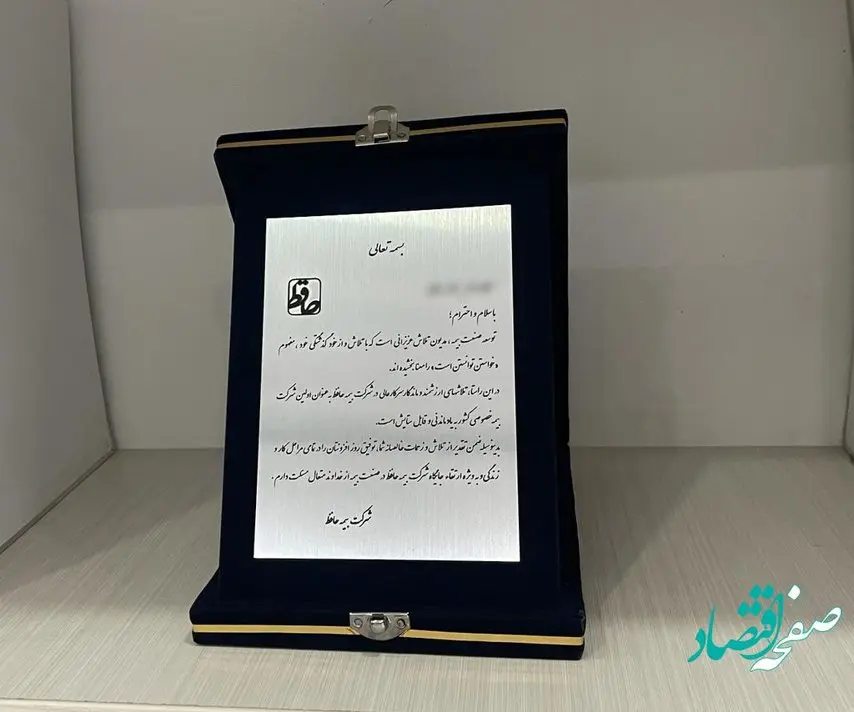 بسمه تعالی
حافظ
با سلام و احترام؛
توسعه صنعت بیمه، مدیون تلاش عزیزانی است که با تلاش و از خود گذشتگی خود، مفهوم
«خواستن توانستن است» را معنا بخشیده اند.
در این راستا، تلاشهای ارزشمند و ماندگار سرکارعالی در شرکت بیمه حافظ به عنوان اولین شرکت
بیمه خصوصی کشور به یاد ماندنی و قابل ستایش است.
بدینوسیله ضمن تقدیر از تلاش و زحمات خالصانه شما، توفیق روز افزونتان را در تمامی مراحل کار و
زندگی و به ویژه ارتقاء جایگاه شرکت بیمه حافظ در صنعت بیمه از خداوند متعال مسئلت دارم.
شرکت بیمه حافظ
صفحه اقتصاد